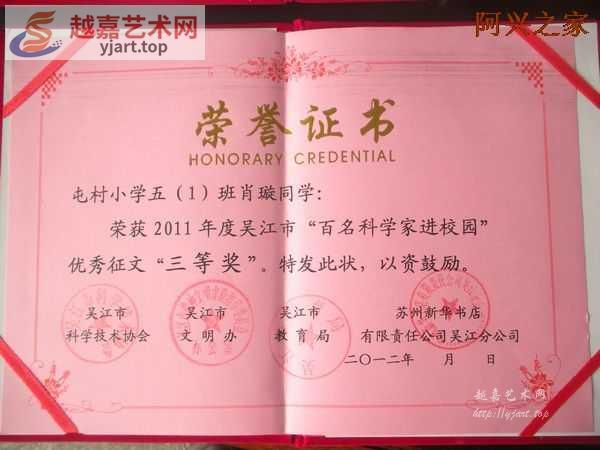 越嘉艺术网
yjart.top
阿兴之家
荣誉证书
HONORARY CREDENTIAL
屯村小学五（1）班肖璇同学：
荣获2011年度吴江市“百名科学家进校园”
优秀征文“三等奖”。特发此状，以资鼓励。
吴江市 吴江市 吴江市 苏州新华书店
科学技术协会 文明办 教育局 有限责任公司吴江分公司
二〇一二年 月 日
越嘉艺术网
http://yjart.top